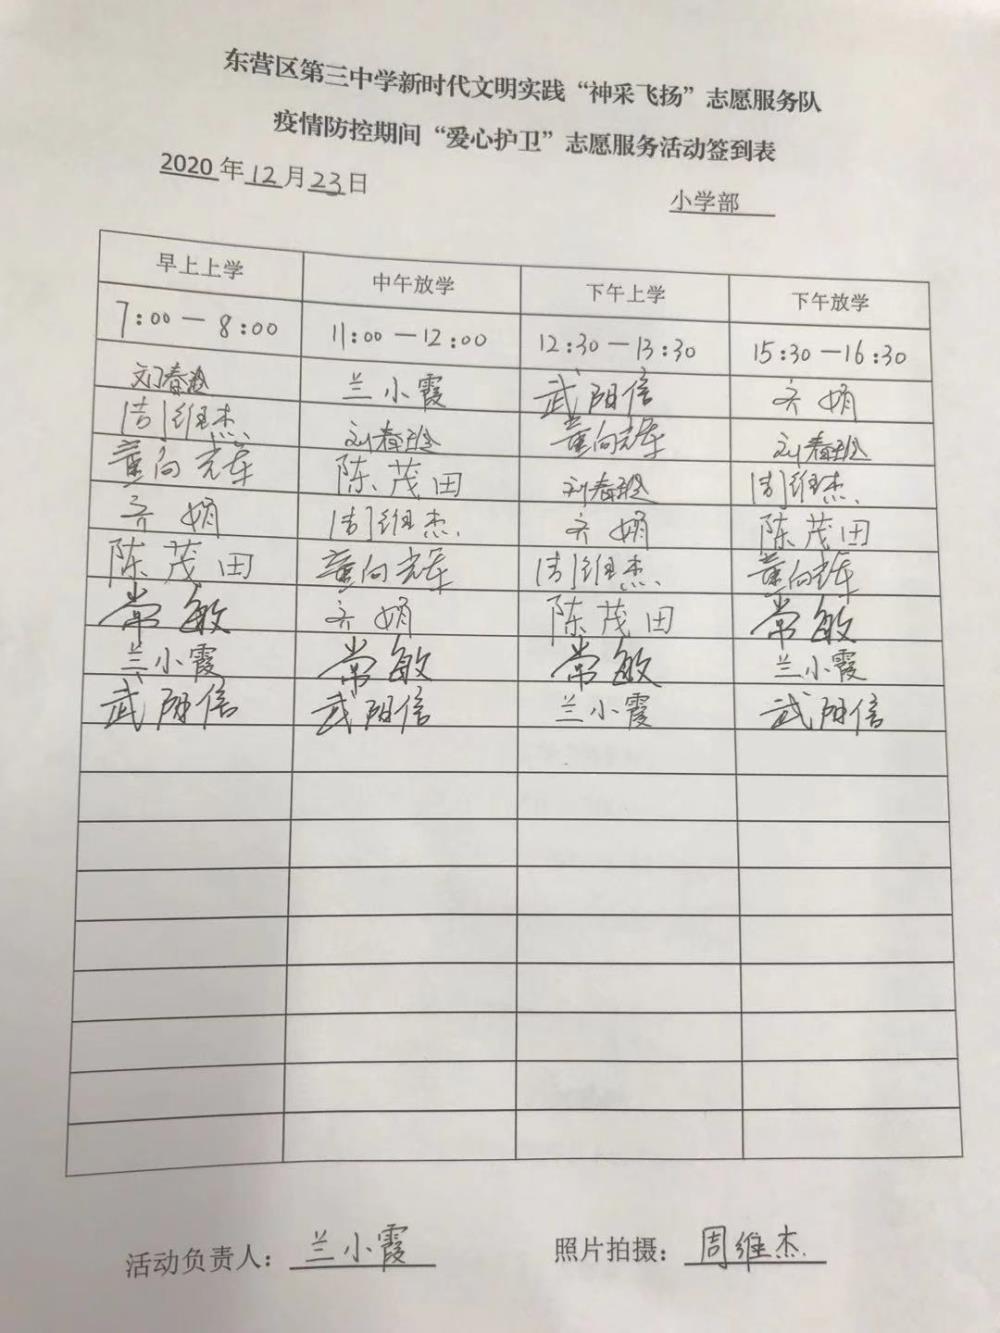 东营区第三中学新时代文明实践“神采飞扬”志愿服务队
疫情防控期间“爱心护卫”志愿服务活动签到表
2020年12月23日 小学部
早上上学 中午放学 下午上学 下午放学
7:00—8:00 11:00—12:00 12:30—13:30 15:30—16:30
刘春玲 兰小霞 武阳信 齐娟
周维杰 刘春玲 董向辉 刘春玲
董向辉 陈茂田 刘春玲 周维杰
齐娟 周维杰 齐娟 陈茂田
陈茂田 董向辉 周维杰 董向辉
常敏 齐娟 陈茂田 常敏
兰小霞 常敏 常敏 兰小霞
武阳信 武阳信 兰小霞 武阳信
活动负责人：兰小霞 照片拍摄：周维杰